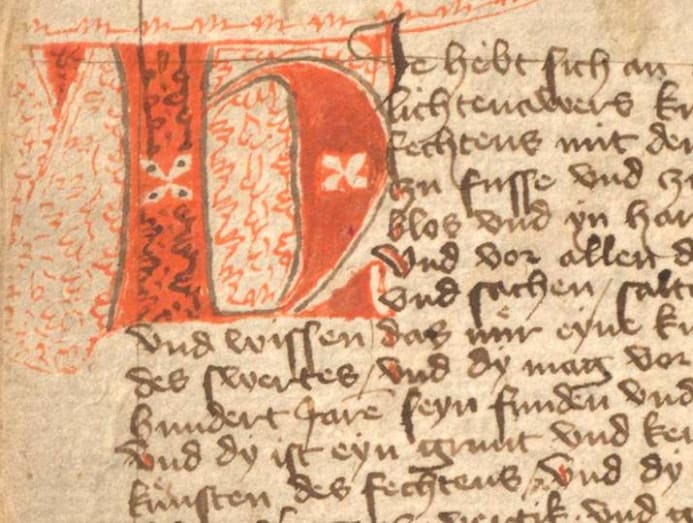 Hie hebt sich an
lichtenawers
fechtens mit
czu fusse vnd
blos vnd yn
Vnd vor allen
vnd sachen / salt
vnd wissen das nür eyne
des swertes / vnd dy mag vor
hundert Jare seyn funden vnd
Vnd dy ist eyn grunt vnd
künsten des fechtens / Vnd dy